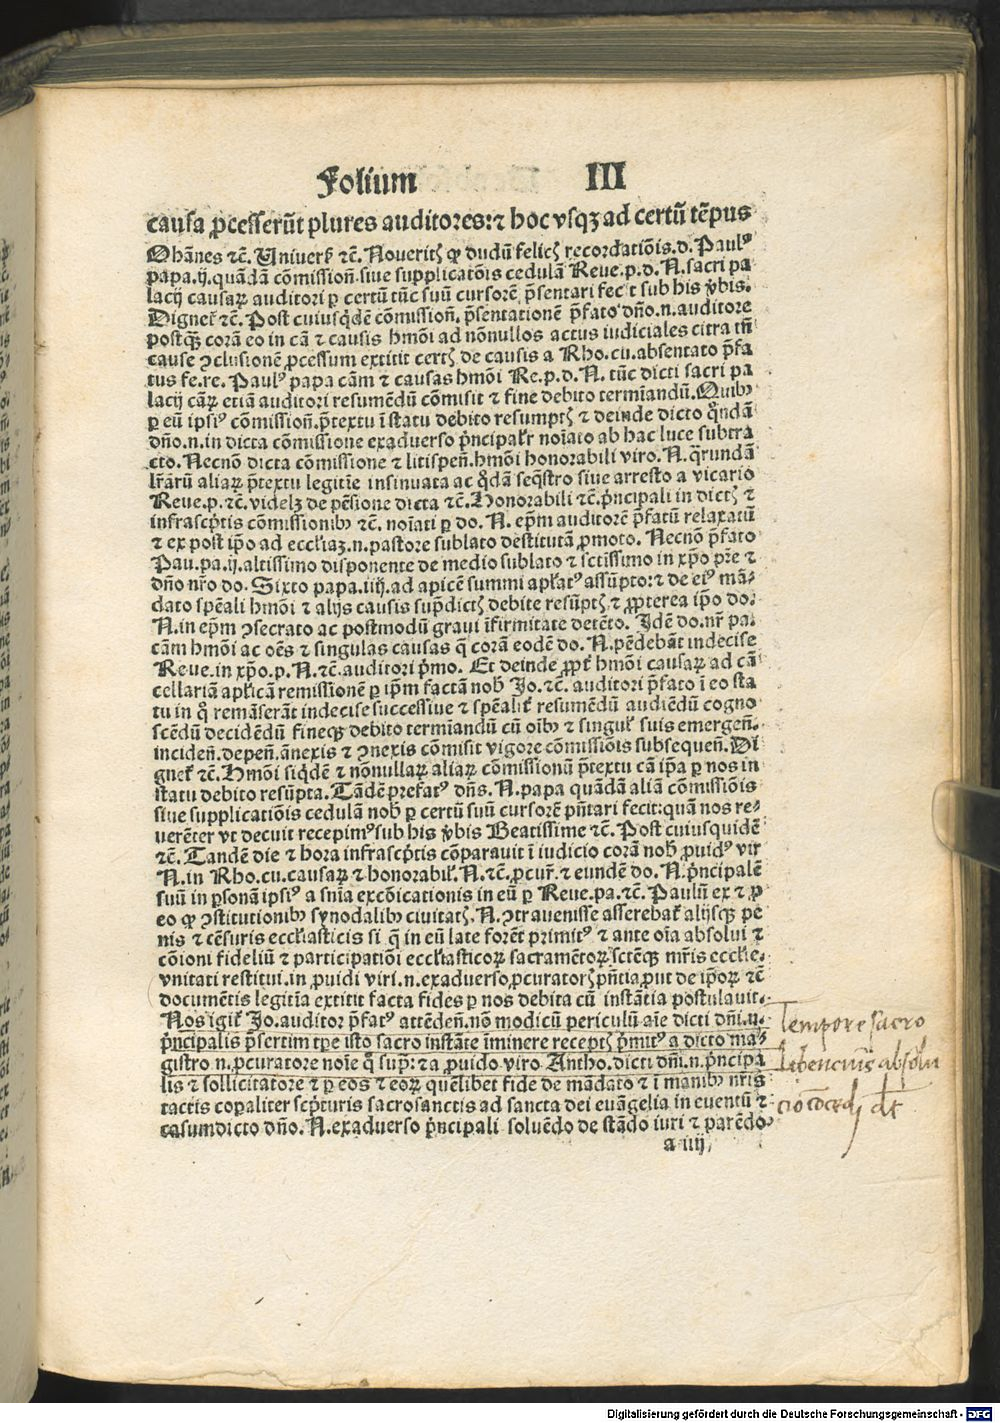 Folium III
causa ꝓcesserūt plures auditores: ⁊ hoc vsqꝫ ad certū tēpus
Ohānes ⁊c̄. Vniuerß ⁊c̄. Noueritꝭ ꝙ dudū felicꝭ recordatiōis. d. Paulꝰ
papa. ij. quādā cōmissioñ. siue supplicatōis cedulā Reue. p. d. N. sacri pa
lacij causaꝝ auditori ꝑ certū tūc suū cursorē p̄sentari fecit sub his v̓bis.
Digneť ⁊c̄. Post cuiusqͥdē cōmissioñ. p̄sentationē p̄fato dño. n. auditore
postqꝫ corā eo in cā ⁊ causis hmōi ad nōnullos actus iudiciales citra tñ
cause ↄclusionē ꝓcessum extitit certꝭ de causis a Rho. cu. absentato p̄fa
tus fe. re. Paulꝰ papa cām ⁊ causas hmōi Re. p. d. N. tūc dicti sacri pa
lacij cāꝝ etiā auditori resumēdū cōmisit ⁊ fine debito termīandū. Quibꝰ
ꝑ eū ipsiꝰ cōmissioñ. p̄textu ī statu debito resumptꝭ ⁊ deinde dicto qͦndā
dño. n. in dicta cōmissione exaduerso pͥncipalr̄ noīato ab hac luce subtra
cto. Necnō dicta cōmissione ⁊ litispeñ. hmōi honorabili viro. N. qͣrundā
lr̄arū aliaꝝ p̄textu legitīe insinuata ac qͦdā seq̄stro siue arresto a vicario
Reue. p. ⁊c̄. videlꝫ de pēsione dicta ⁊c̄. Honorabili ⁊c̄. pͥncipali in dictꝭ ⁊
infrascpͥtis cōmissionibꝰ ⁊c̄. noīati ꝑ do. N. ep̄m auditorē p̄fatū relaxatū
⁊ ex post ip̄o ad eccl̄iaꝫ. n. pastore sublato destitutā ꝓmoto. Necnō p̄fato
Pau. pa. ij. altissimo disponente de medio sublato ⁊ sctissimo in xp̄o pr̄e ⁊
dño nr̄o do. Sixto papa. iiij. ad apicē summi apl̄atꝰ assūpto: ⁊ de eiꝰ mā⸗
dato spēali hmōi ⁊ alijs causis supͣdictꝭ debite resūptꝭ ⁊ ꝓpterea ip̄o do.
N. in ep̄m ↄsecrato ac postmodū graui īfirmitate detēto. Idē do. nr̄ pa.
cām hmōi ac oēs ⁊ singulas causas q̄ corā eodē do. N. pēdebāt indecise
Reue. in xp̄o. p. N. ⁊c̄. auditori pͥmo. Et deinde ꝓpt̓ hmōi causaꝝ ad cā
cellariā apl̄icā remissionē ꝑ ip̄m factā nob̄ Jo. ⁊c̄. auditori p̄fato ī eo sta
tu in qͦ remāserāt indecise successiue ⁊ spēaliť resumēdū audiēdū cogno
scēdū decidēdū fineqꝫ debito termīandū cū oībꝰ ⁊ singuľ suis emergeñ.
incideñ. depeñ. ānexis ⁊ ↄnexis cōmisit vigore cōmissiōis subsequeñ. Di
gneť ⁊c̄. Hmōi siqͥdē ⁊ nōnullaꝝ aliaꝝ cōmissionū p̄textu cā ip̄a ꝑ nos in
statu debito resūpta. Tādē prefatꝰ dñs. N. papa quādā aliā cōmissiōis
siue supplicatiōis cedulā nob̄ ꝑ certū suū cursorē pñtari fecit: quā nos re⸗
uerēter vt decuit recepimꝰ sub his v̓bis Beatissime ⁊c̄. Post cuiusquidē
⁊c̄. Tandē die ⁊ hora infrascpͥtis cōparauit ī iudicio corā nob̄ ꝓuidꝰ vir
N. in Rho. cu. causaꝝ ⁊ honorabiľ. N. ⁊c̄. ꝓcur̄. ⁊ eundē do. N. pͥncipalē
suū in ꝑsonā ipsiꝰ a snīa excōicationis in eū ꝑ Reue. pa. ⁊c̄. Paulū ex ⁊ ꝓ
eo ꝙ ↄstitutionibꝰ synodalibꝰ ciuitatꝭ. N. ↄtrauenisse asserebať alijsqꝫ pe
nis ⁊ cēsuris eccl̄iasticis si q̄ in eū late forēt primitꝰ ⁊ ante oīa absolui ⁊
cōioni fideliū ⁊ participatiōi eccl̄iasticoꝝ sacramētoꝝ sctēqꝫ mr̄is eccl̄ie.
vnitati restitui. in ꝓuidi viri. n. exaduerso ꝓcuratorꝭ pñtia ꝓut de ip̄oꝝ ⁊c̄
documētis legitīa extitit facta fides ꝑ nos debita cū instātia postulauit.
Nos igiť Jo. auditor p̄fatꝰ attēdeñ. nō modicū periculū aīe dicti dñi. n.
pͥncipalis p̄sertim tp̄e isto sacro instāte īminere receptꝭ pͥmitꝰ a dicto ma⸗
gistro n. ꝓcuratore noīe qͦ supͣ: ⁊ a ꝓuido viro Antho. dicti dñi. n. pͥncipa
lis ⁊ sollicitatore ⁊ ꝑ eos ⁊ eoꝝ quēlibet fide de mādato ⁊ ī manibꝰ nr̄is
tactis copaliter scpͥturis sacrosanctis ad sancta dei euāgelia in euentū ⁊
casum dicto dño. N. exaduerso pͥncipali soluēdo de stādo iuri ⁊ parēdo
a iiij
Tempore sacro
absolu
Digitalisierung gefördert durch die Deutsche Forschungsgemeinschaft - DFG